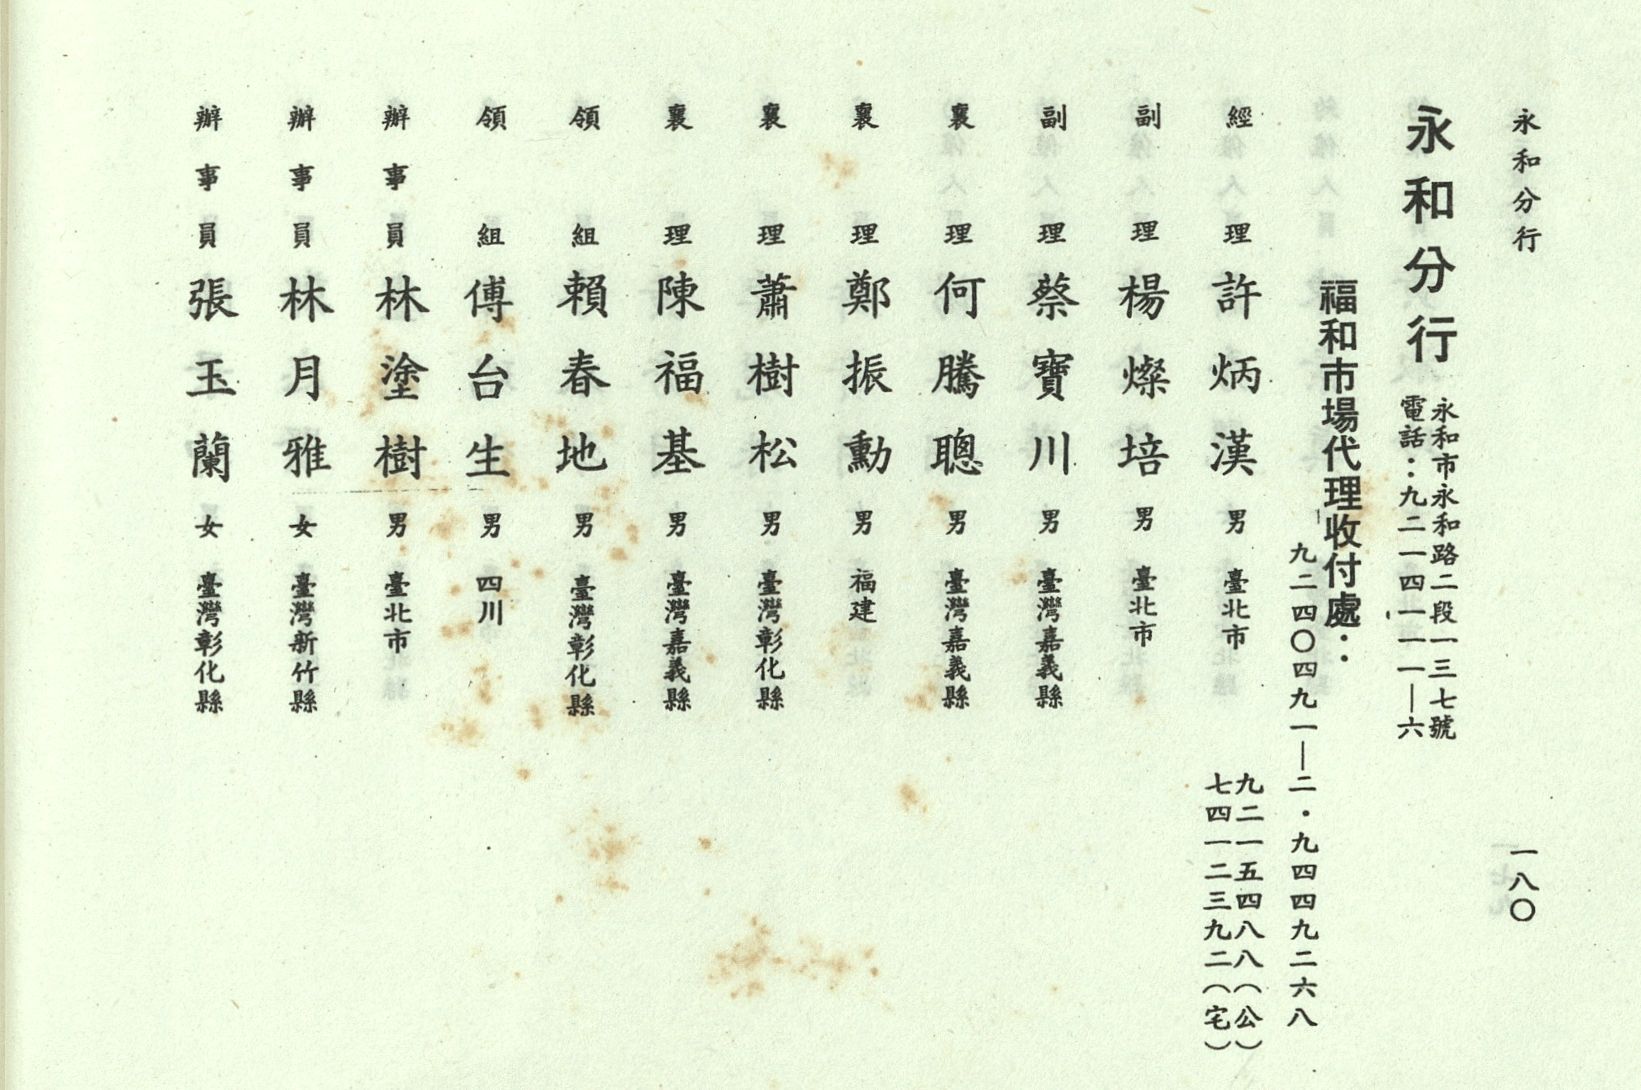 永和分行
一八〇
永和分行
永和市永和路二段一三七號
電話：九二一四一一一—六
福和市場代理收付處：
九二四〇四九一—二・九四四九二六八
經理 許炳漢 男 臺北市 九二一五四八八（公）
七四一二三九二（宅）
副理 楊燦培 男 臺北市
副理 蔡寶川 男 臺灣嘉義縣
襄理 何騰聰 男 臺灣嘉義縣
襄理 鄭振勳 男 福建
襄理 蕭樹松 男 臺灣彰化縣
襄理 陳福基 男 臺灣嘉義縣
領組 賴春地 男 臺灣彰化縣
領組 傅台生 男 四川
辦事員 林塗樹 男 臺北市
辦事員 林月雅 女 臺灣新竹縣
辦事員 張玉蘭 女 臺灣彰化縣